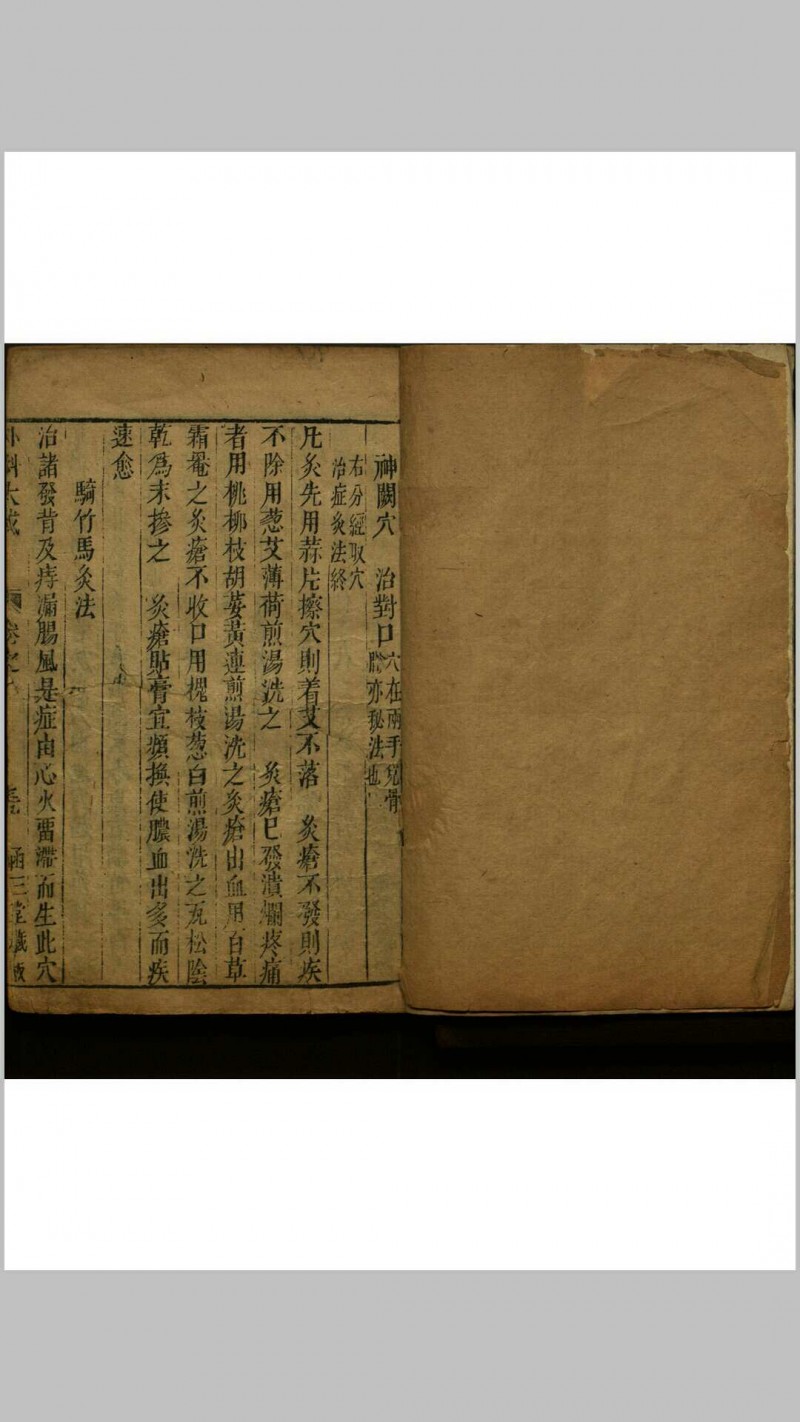 神闕穴　治對口穴在兩手兌骨
　　　　　　　亦秘法也
右分經取穴
治症灸法終
凡灸先用蒜片擦穴則着艾不落　灸瘡不發則疾
不除用葱艾薄荷煎湯洗之　灸瘡已發潰爛疼痛
者用桃柳枝胡荽黃連煎湯洗之灸瘡出血用百草
霜罨之灸瘡不收口用槐枝葱白煎湯洗之瓦松陰
乾為末摻之　灸瘡貼膏宜頻換使膿血出多而疾
速愈
騎竹馬灸法
治諸發背及痔漏腸風是症由心火畱滯而生此穴
外科大成　卷之　涵三堂藏板